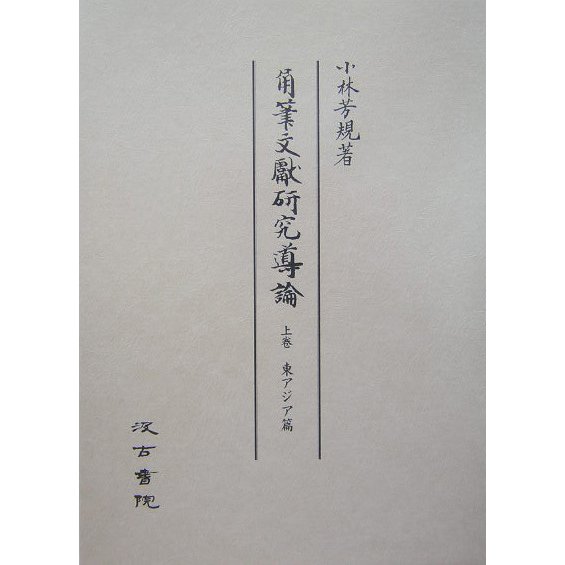 小林芳規著
角筆文獻研究導論
上卷 東アジア篇
汲古書院